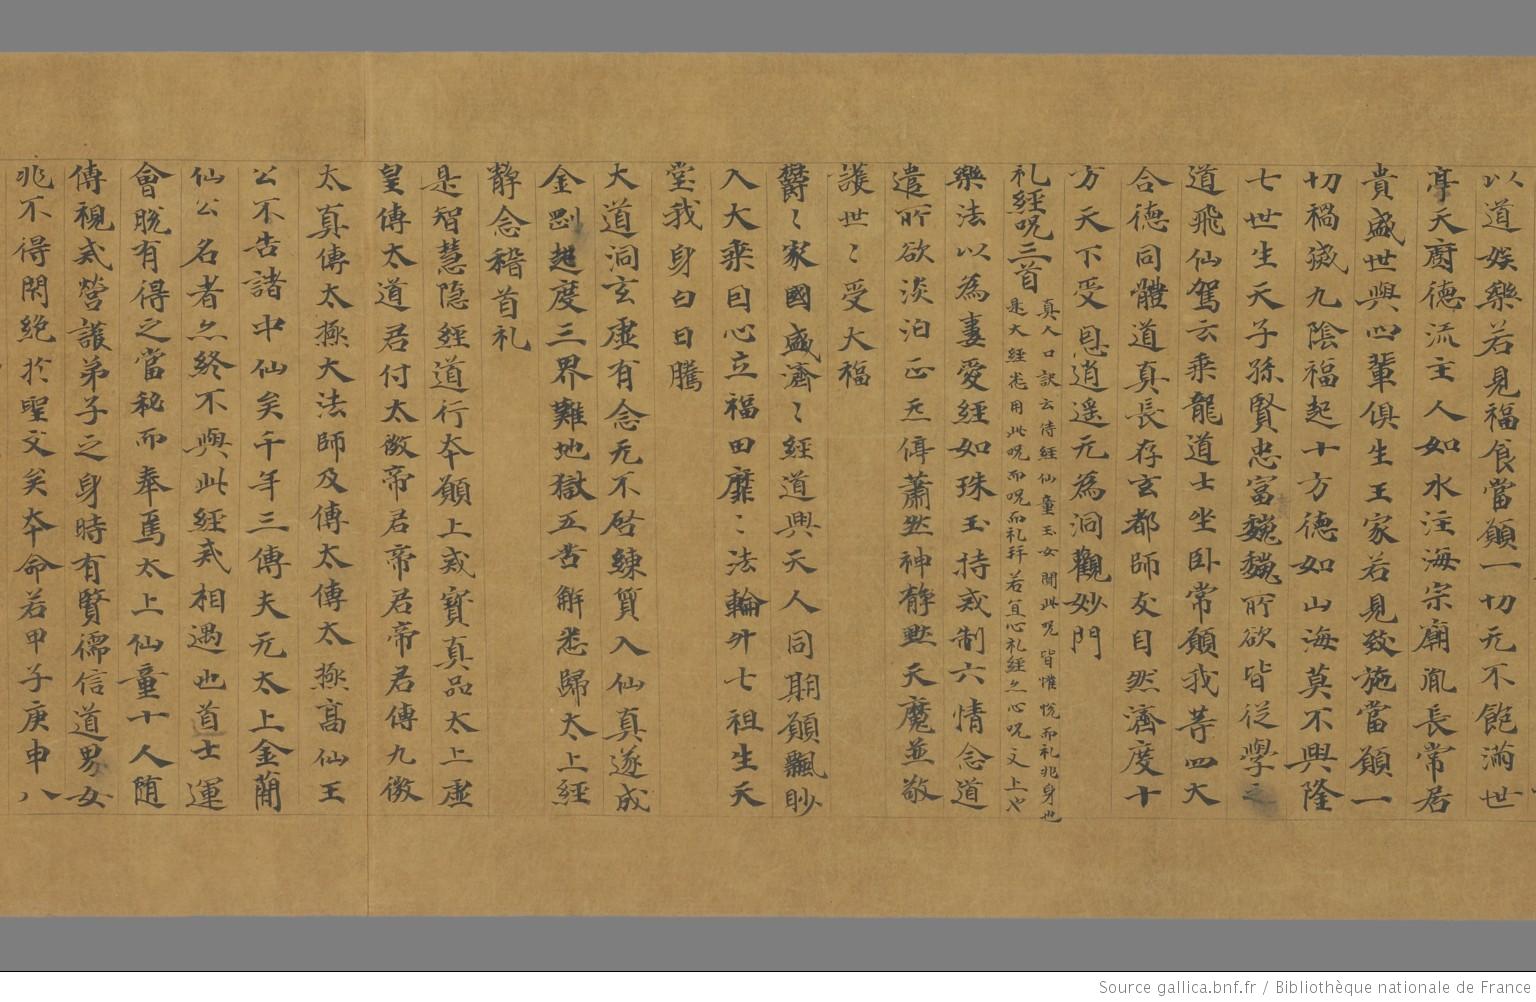 以道娱樂若見福食當願一切无不飽滿世
享天廚德流主人如水注海宗廟胤長常居
貴盛世與四輩俱生王家若見致施當願一
切禍滅九陰福起十方德如山海莫不興隆
七世生天子孫賢忠富巍巍所欲皆從學之
道飛仙駕云乘龍道士坐卧常願我等四大
合德同體道真長存玄都師友自然濟度十
方天下受恩逍遥无為洞觀妙門
礼經呪三首
真人口訣云侍經仙童玉女聞此呪皆惟悅而礼兆身也
是大經悉用此呪而呪而礼拜若宜心礼經亦心呪文上也
樂法以為妻愛經如珠玉持戒制六情念道
遣所欲淡泊正炁停蕭然神静默天魔並敬
護世〻受大福
欝〻家國盛濟〻經道興天人同期願飄眇
入大乘因心立福田靡〻法輪升七祖生天
堂我身白日騰
大道洞玄虚有念无不啓練質入仙真遂成
金剛超度三界難地獄五苦解悉歸太上經
静念稽首礼
是智慧隐經道行夲願上戒寳真品太上虚
皇傳太道君付太微帝君帝君帝君傳九微
太真傳太極大法師及傳太傳太極髙仙王
公不告諸中仙矣千年三傳夫无太上金蕳
仙公名者亦終不與此經戒相遇也首士運
會脱有得之當秘而奉焉太上仙童十人随
傳視戒營護弟子之身時有賢儒信道男女
兆不得閇絶扵聖文矣夲命若甲子庚申八
Source gallica.bnf.fr / Bibliothèque nationale de France